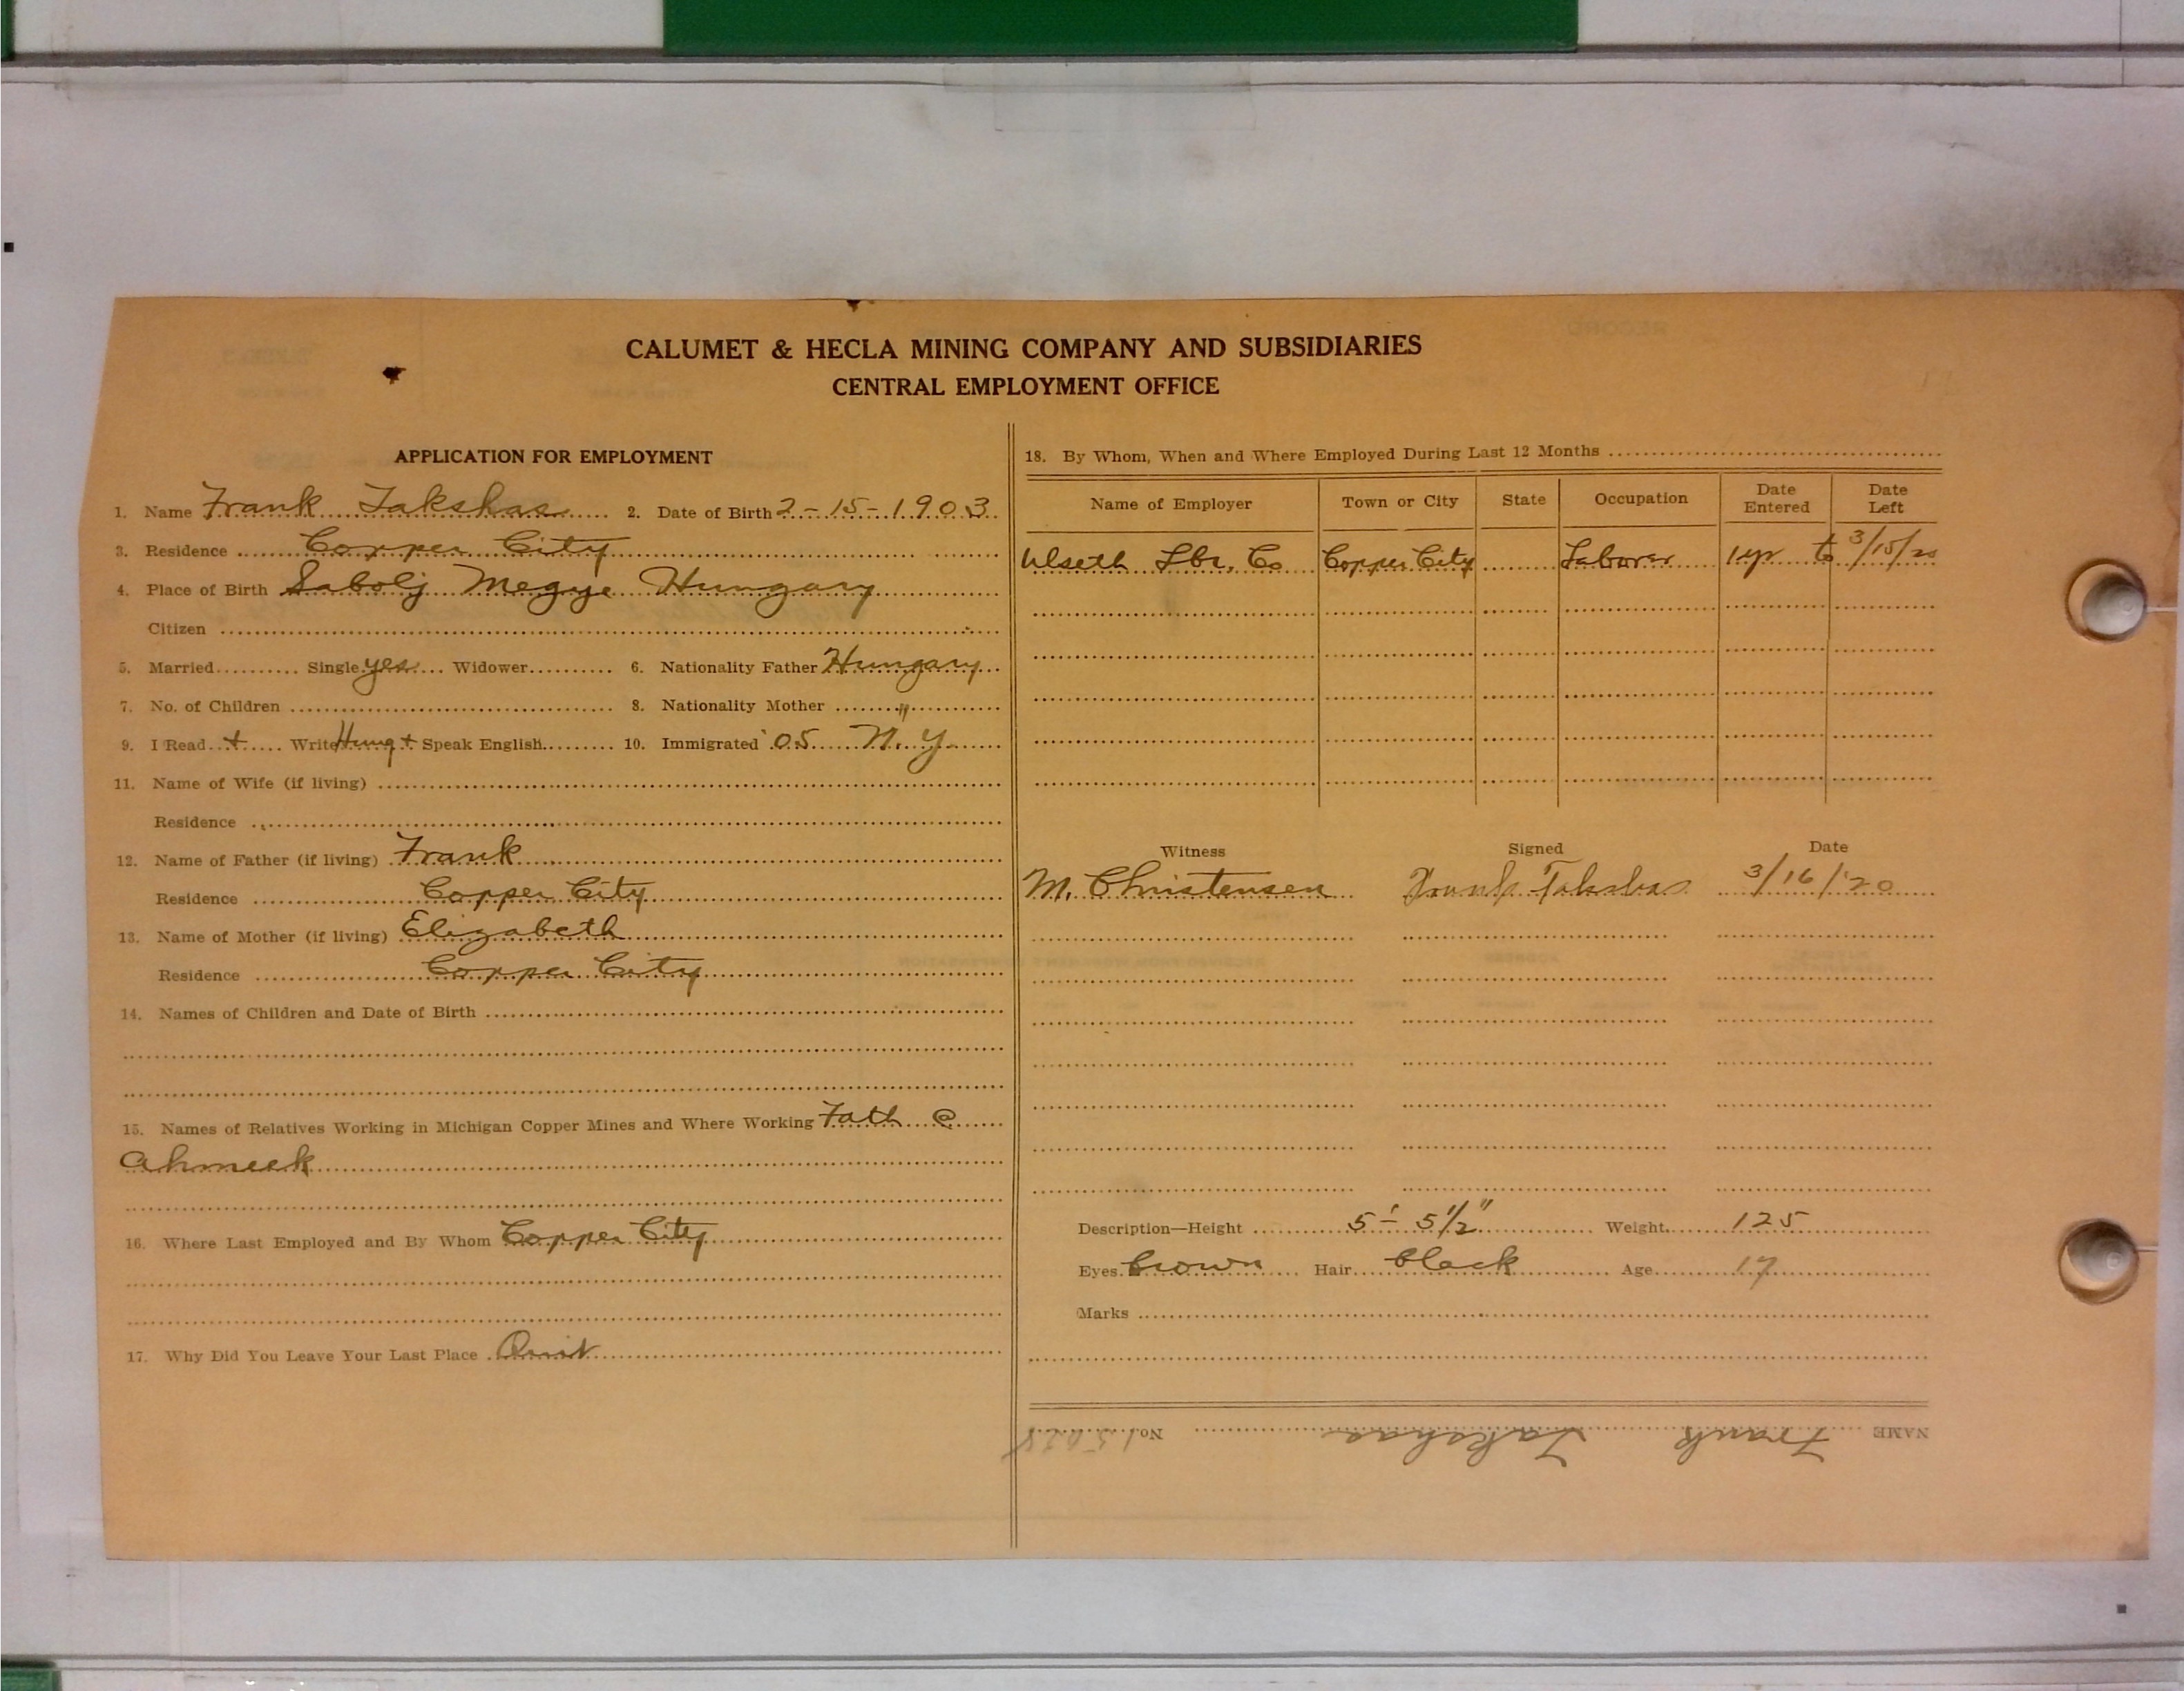 CALUMET & HECLA MINING COMPANY AND SUBSIDIARIES
CENTRAL EMPLOYMENT OFFICE
APPLICATION FOR EMPLOYMENT
1. Name Frank Takshas 2. Date of Birth 2-15-1903
3. Residence Copper City
4. Place of Birth Sabolj Megye Hungary
Citizen
5. Married Single yes Widower 6. Nationality Father Hungary
7. No. of Children 8. Nationality Mother "
9. I Read + Write Hung + Speak English 10. Immigrated '05 N.Y.
11. Name of Wife (if living)
Residence
12. Name of Father (if living) Frank
Residence Copper City
13. Name of Mother (if living) Elizabeth
Residence Copper City
14. Names of Children and Date of Birth
15. Names of Relatives Working in Michigan Copper Mines and Where Working Fath @
Ahmeek
16. Where Last Employed and By Whom Copper City
17. Why Did You Leave Your Last Place Quit
18. By Whom, When and Where Employed During Last 12 Months
Name of Employer Town or City State Occupation Date Entered Date Left
Ulseth Lbr. Co Copper City Laborer 1 yr to 3/15/20
Witness Signed Date
M. Christensen Frank Takshas 3/16/'20
Description—Height 5'- 5 1/2" Weight 125
Eyes brown Hair black Age 17
Marks
NAME Frank Takshas No.